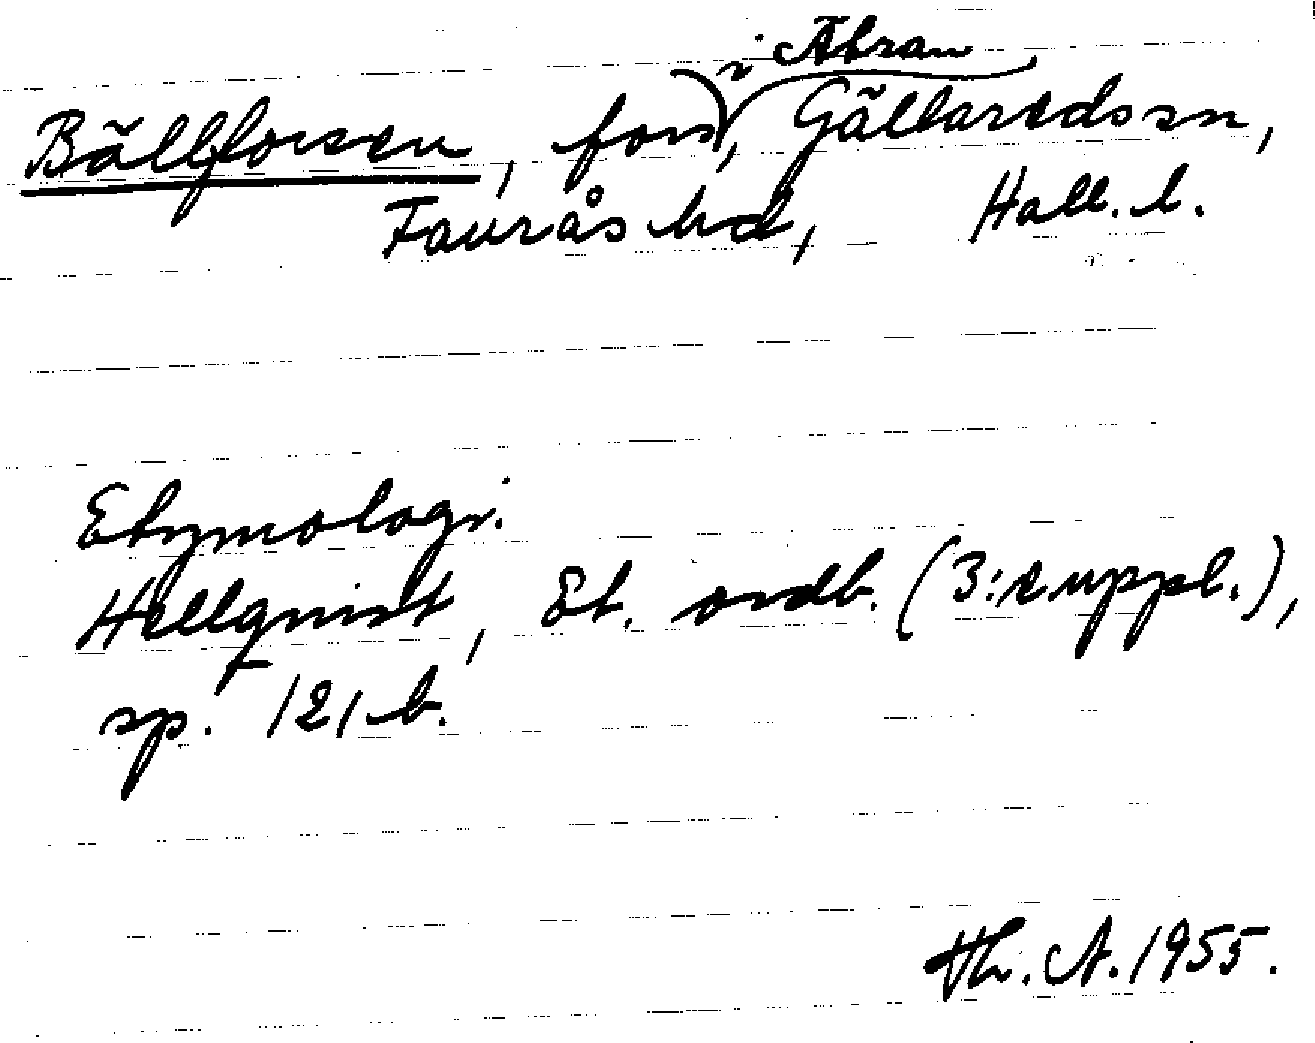 i Ätran
Bällforsen, fors, Gällaredssn,
Faurås hd, Hall. l.
Etymologi.
Hellquist, Et. ordb. (3:e uppl.),
sp. 121 b.
Th. A. 1955.